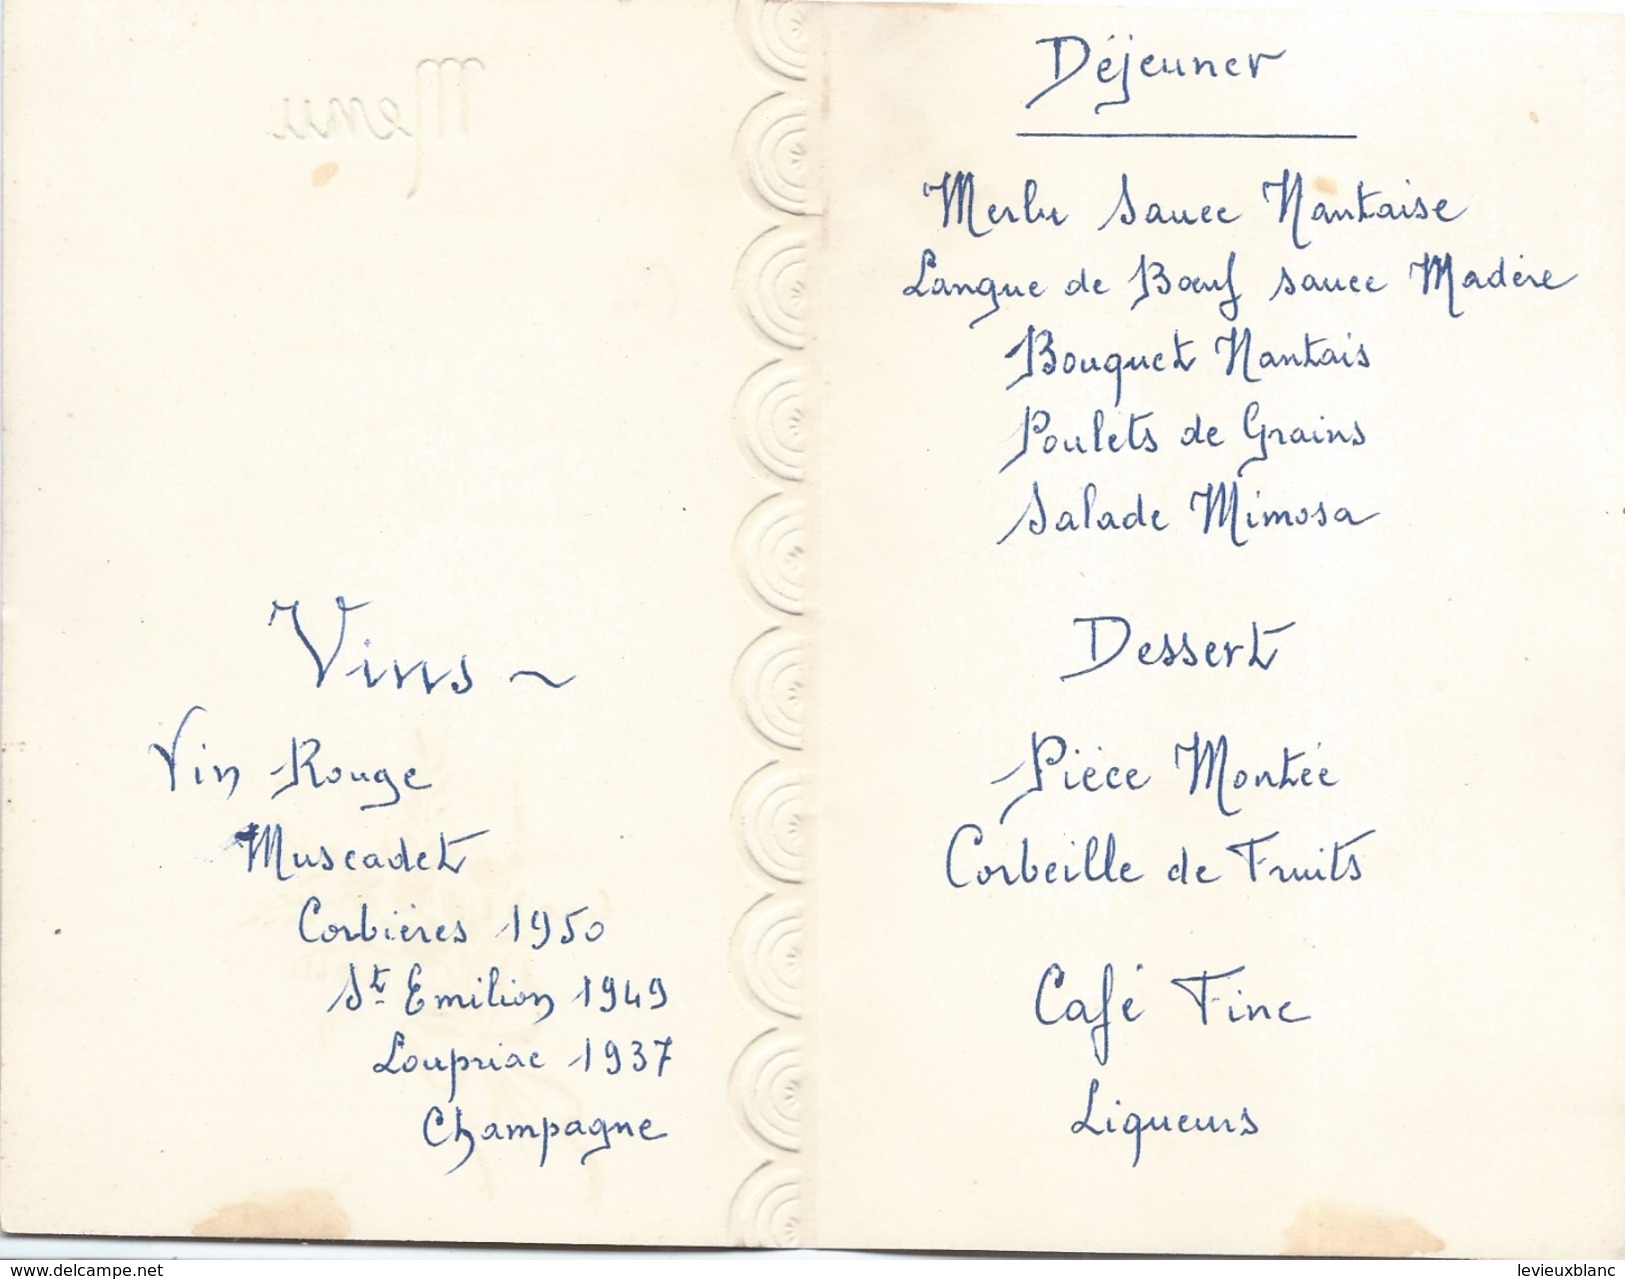 Menu
Vins ~
Vin Rouge
Muscadet
Corbières 1950
St Emilion 1949
Loupriac 1937
Champagne
Déjeuner
Merlu Sauce Nantaise
Langue de Bœuf sauce Madère
Bouquet Nantais
Poulets de Grains
Salade Mimosa
Dessert
Pièce Montée
Corbeille de Fruits
Café Fine
Liqueurs
www.delcampe.net
levieuxblanc